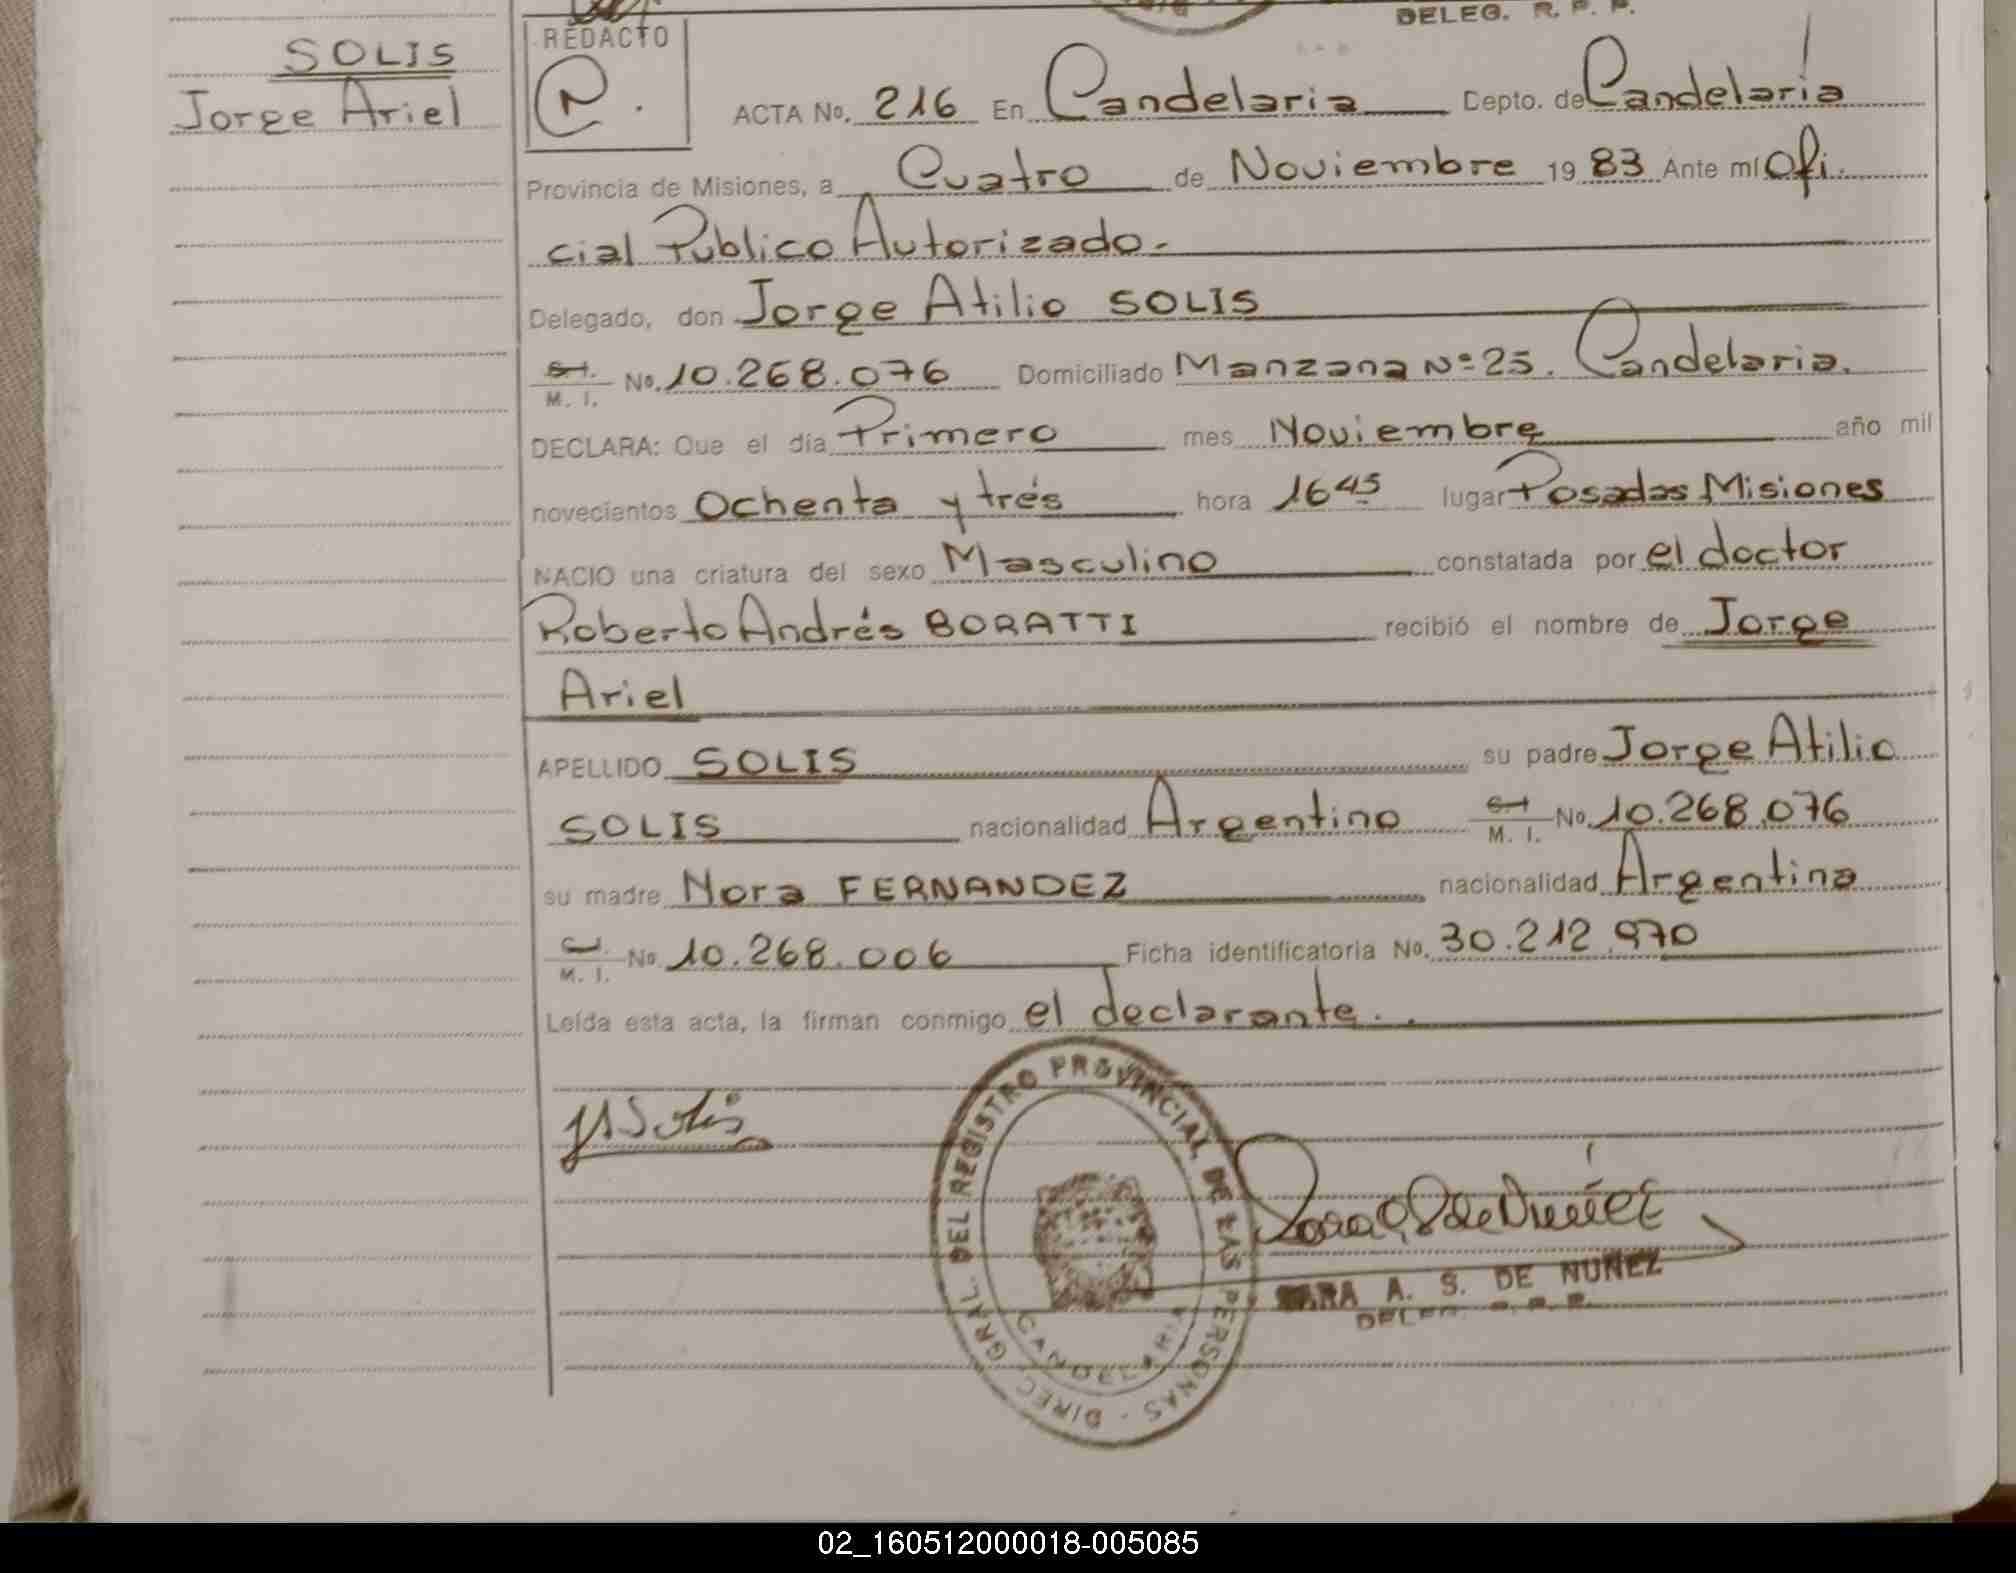 DELEG. R. P. P.
SOLIS
Jorge Ariel
REDACTO
ACTA No. 216 En Candelaria Depto. de Candelaria
Provincia de Misiones, a Cuatro de Noviembre 1983 Ante mí Ofi.
cial Público Autorizado.-
Delegado, don Jorge Atilio SOLIS
C.I. M. I. No. 10.268.076 Domiciliado Manzana Nº 25. Candelaria.
DECLARA: Que el día Primero mes Noviembre año mil
novecientos Ochenta y trés hora 16 45 lugar Posadas Misiones
NACIO una criatura del sexo Masculino constatada por el doctor
Roberto Andrés BORATTI recibió el nombre de Jorge
Ariel
APELLIDO SOLIS su padre Jorge Atilio
SOLIS nacionalidad Argentino C.I. M. I. No. 10.268.076
su madre Nora FERNANDEZ nacionalidad Argentina
C.I. M. I. No. 10.268.006 Ficha identificatoria No. 30.212.970
Leída esta acta, la firman conmigo el declarante..
JASolis
DIREC. GRAL. DEL REGISTRO PROVINCIAL DE LAS PERSONAS -
CANDELARIA
SARA A. S. DE NUÑEZ
DELEG. R. P. P.
02_160512000018-005085